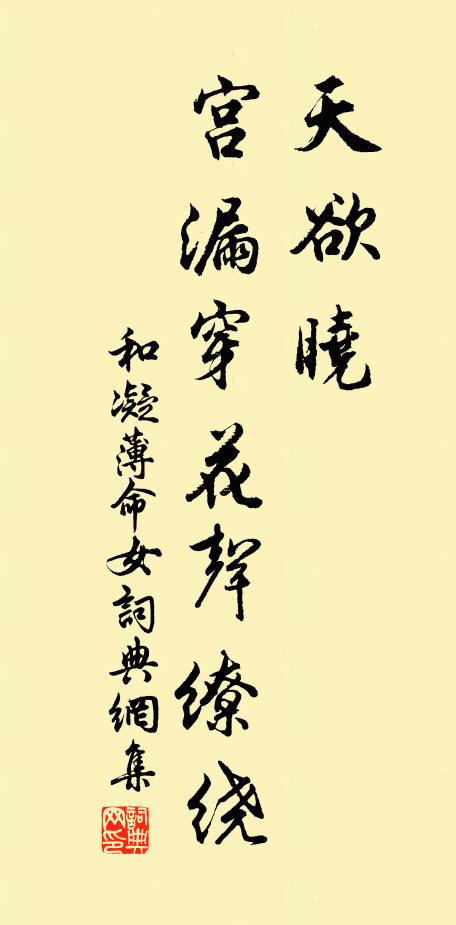 天欲曉
宫漏穿花聲缭绕
和凝薄命女詞典網集
詞典网印